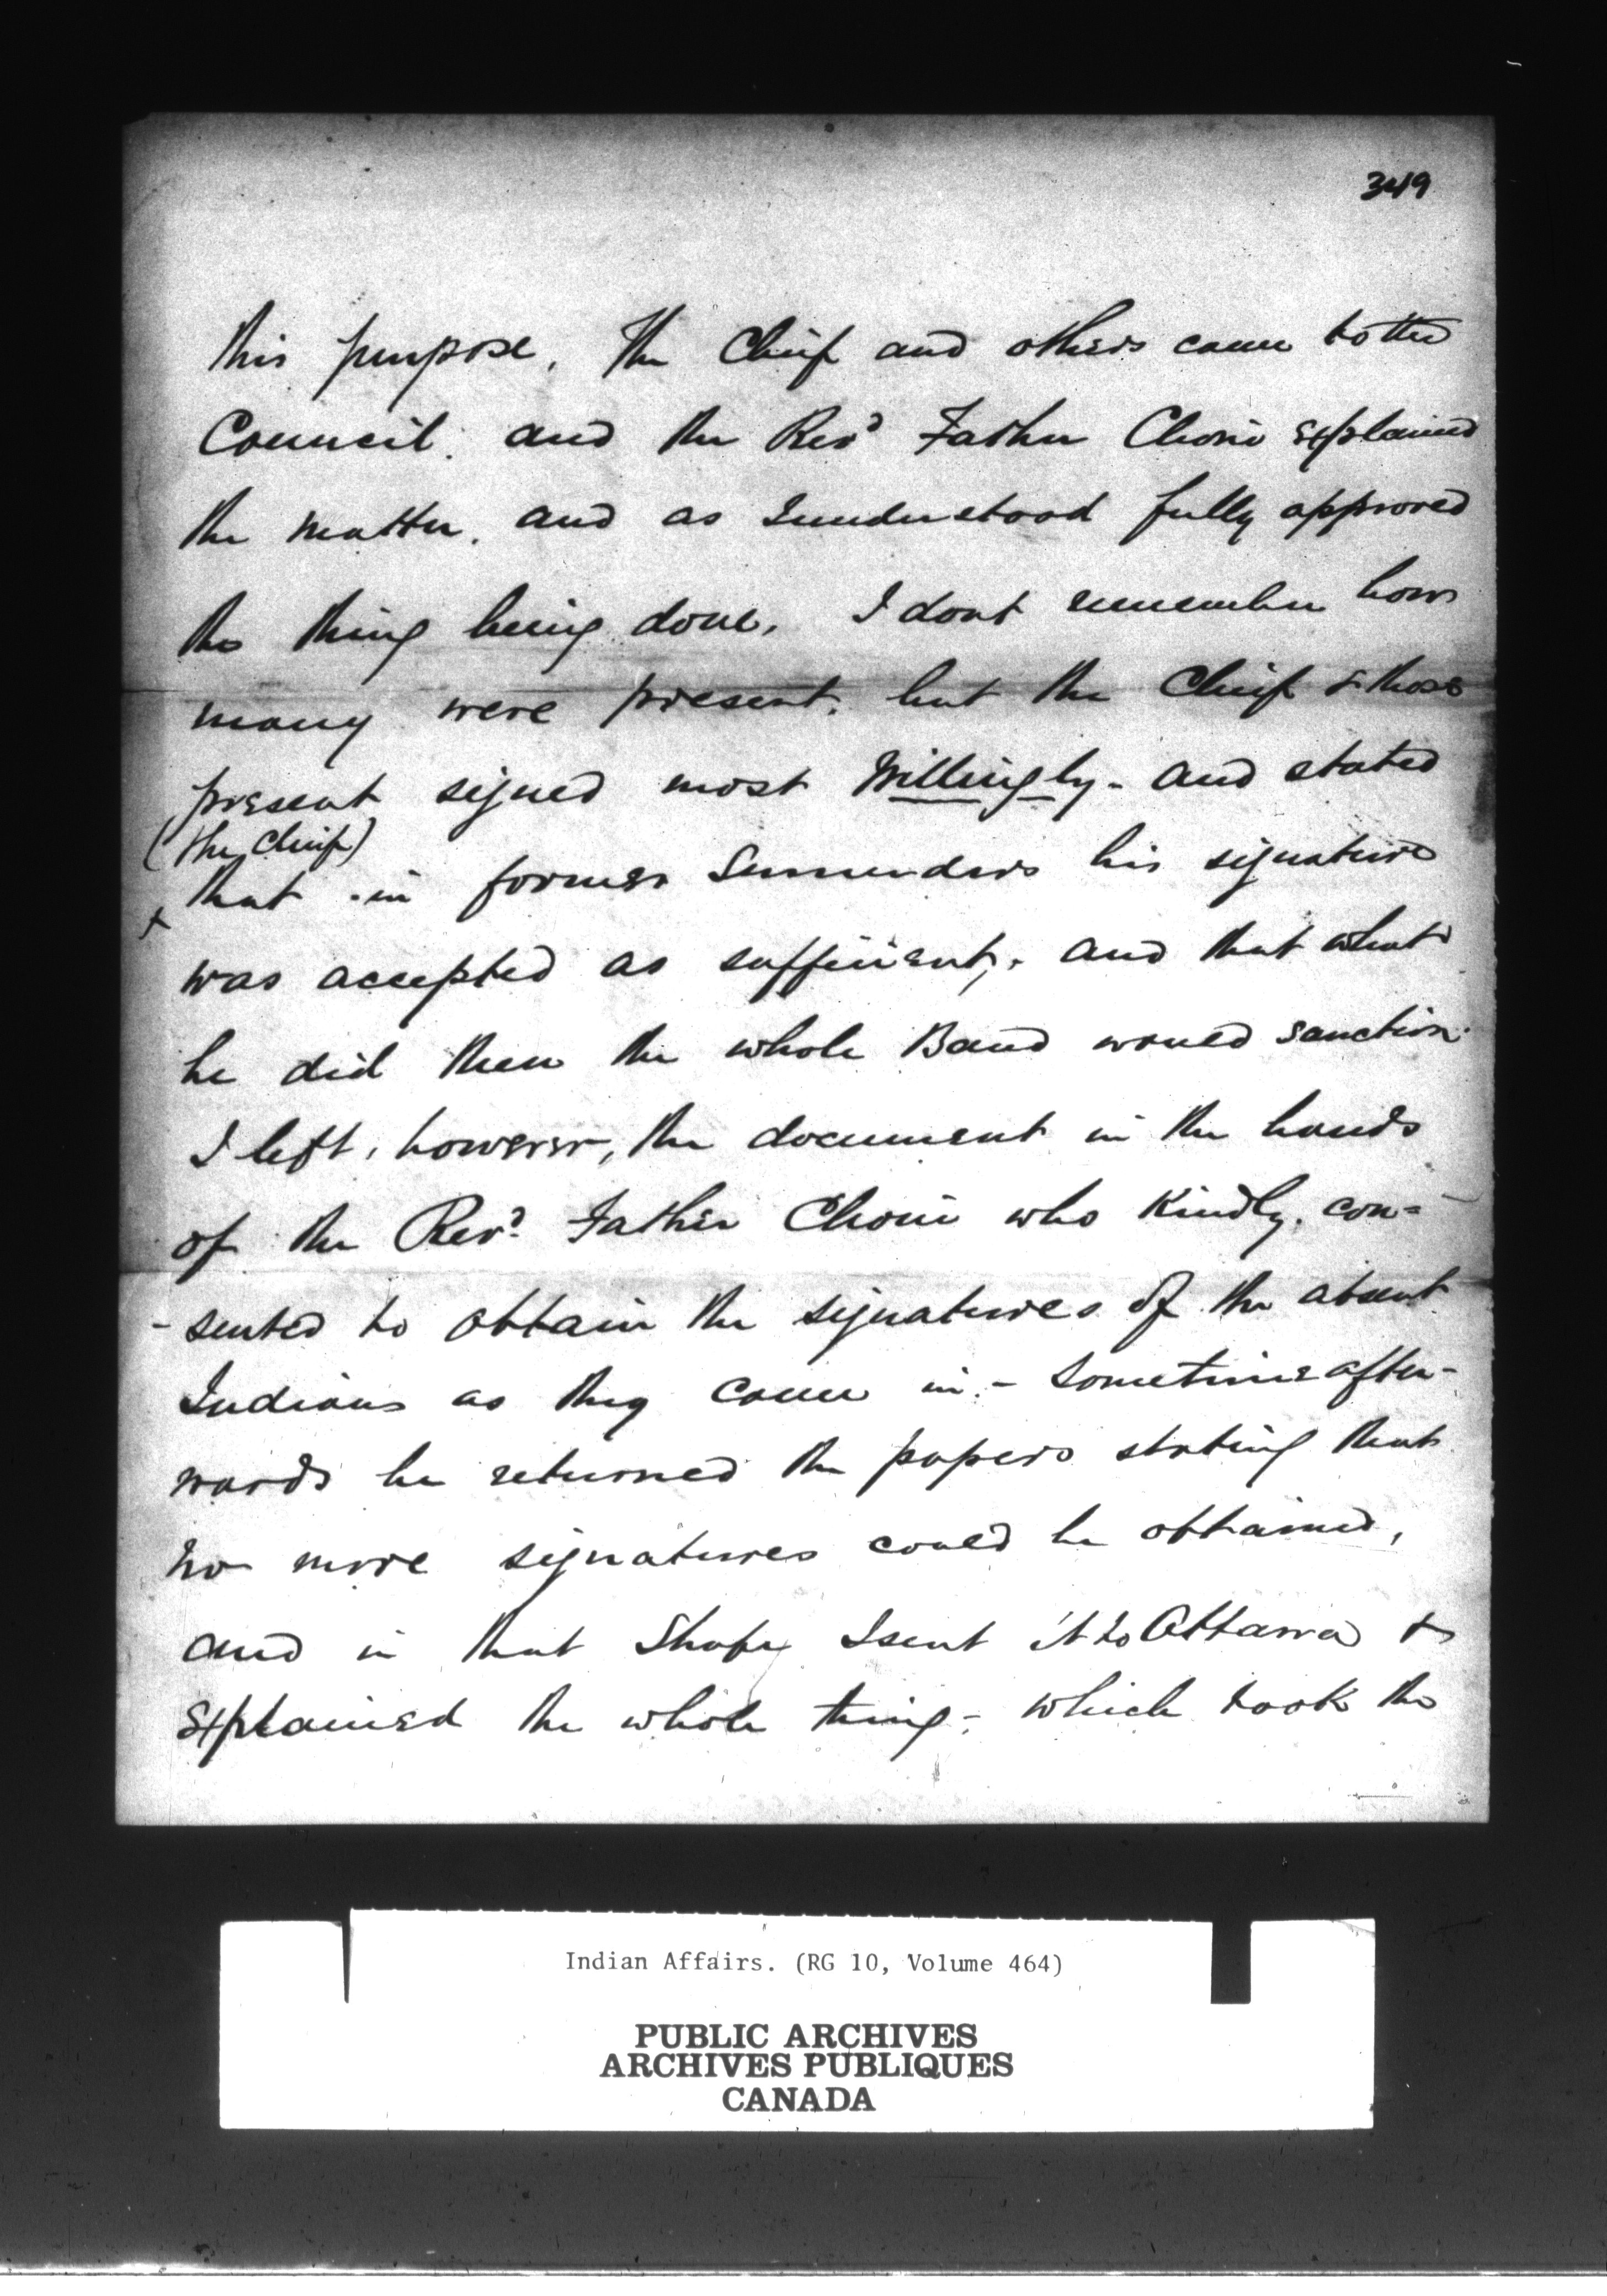 349
this purpose. The Chief and others came to the
Council. and the Revd Father Choné explained
the matter. and as I understood fully approved
the thing being done. I dont remember how
many were present. but the Chief & those
present signed most Willingly - and stated
(the Chief)
x that in former Surrenders his signature
was accepted as sufficient, and that what
he did then the whole Band would sanction.
I left, however, the document in the hands
of the Revd Father Choné who kindly con=
-sented to obtain the signatures of the absent
Indians as they came in. - Sometime after-
wards he returned the papers stating that
no more signatures could be obtained,
and in that Shape I sent it to Ottawa &
explained the whole thing - which took the
Indian Affairs. (RG 10, Volume 464)
PUBLIC ARCHIVES
ARCHIVES PUBLIQUES
CANADA